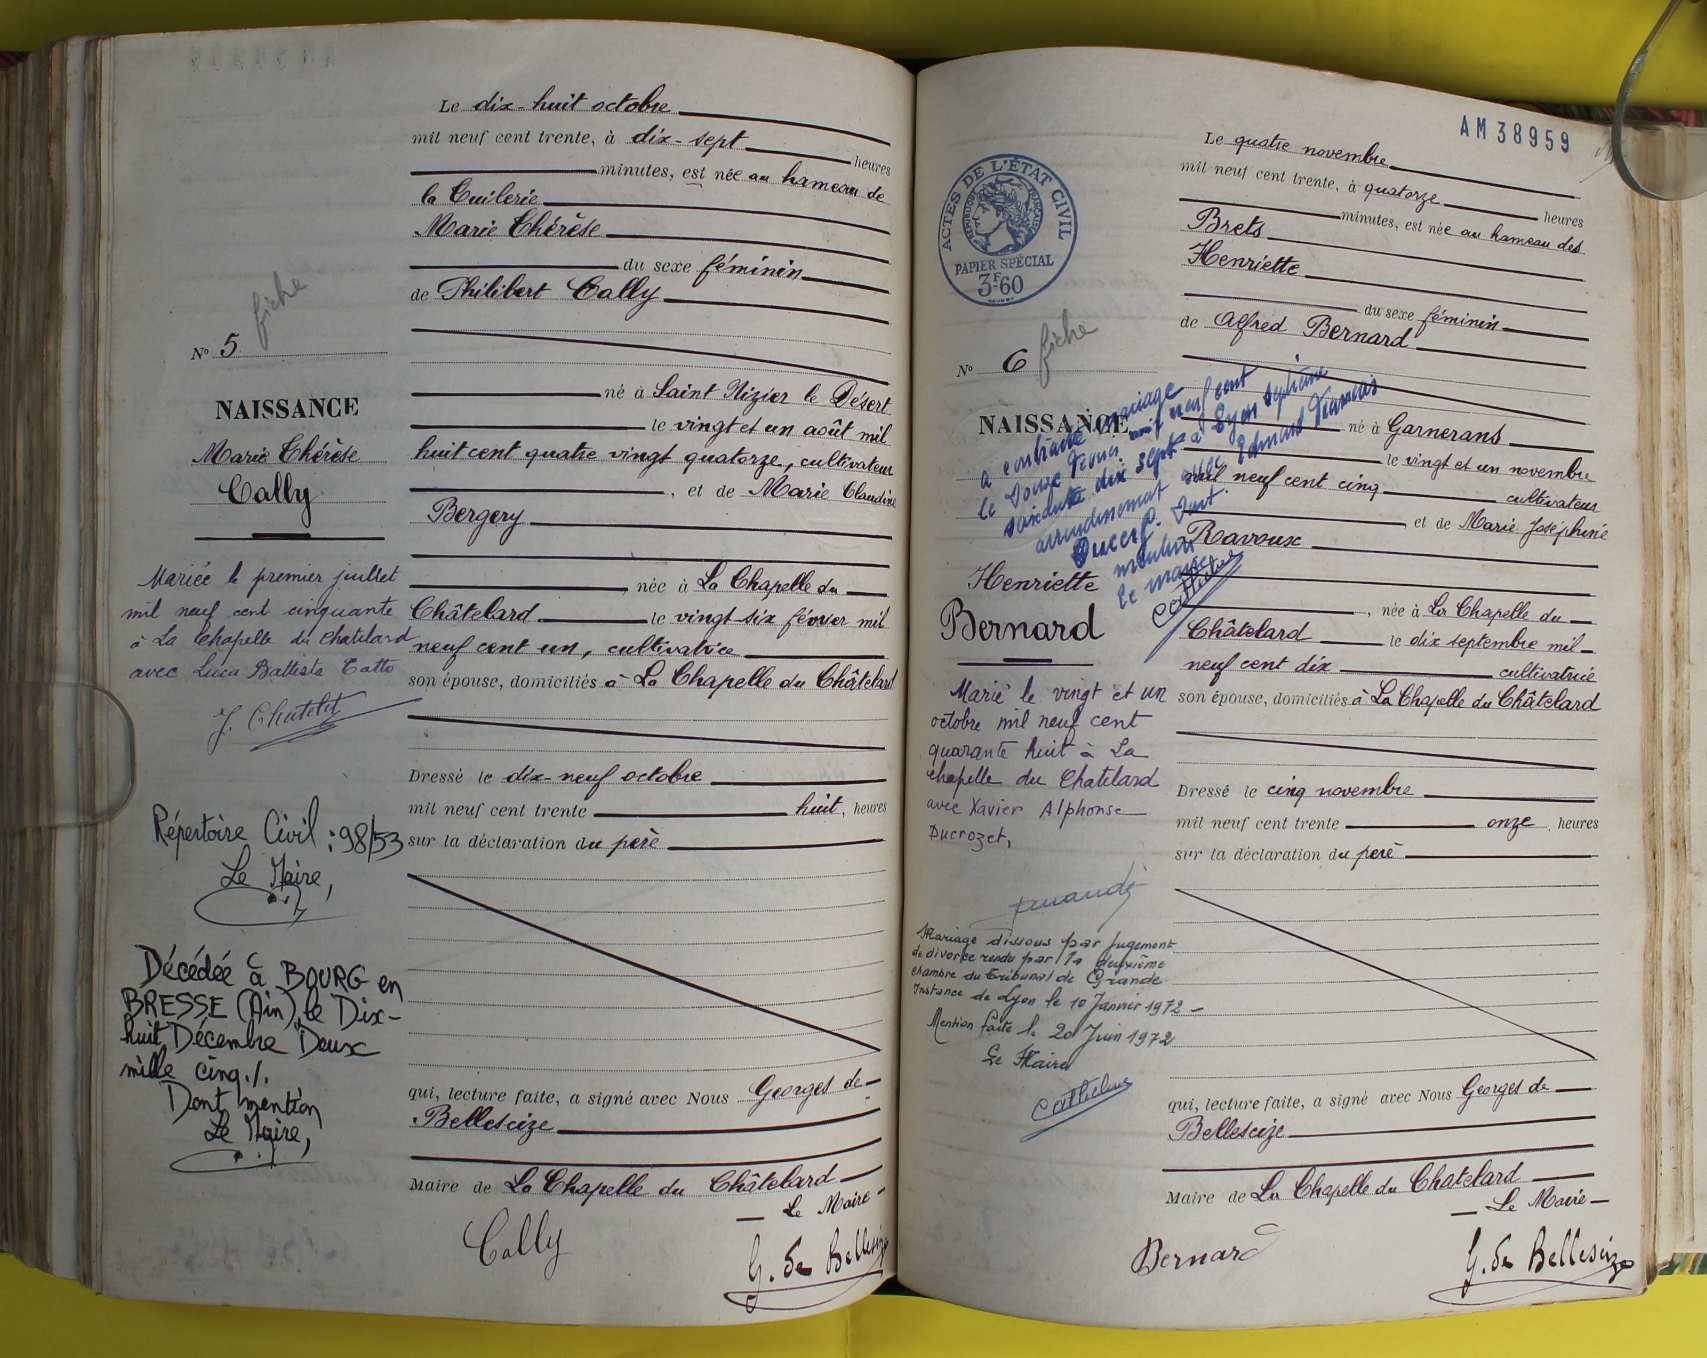 Le dix-huit octobre
mil neuf cent trente, à dix-sept heures
minutes, est née au hameau de
la Tuilerie
Marie Thérèse
du sexe féminin
de Philibert Cally
né à Saint Nizier le Désert
le vingt et un août mil
huit cent quatre vingt quatorze, cultivateur
, et de Marie Claudine
Bergery
née à La Chapelle du
Châtelard le vingt-six février mil
neuf cent un, cultivatrice
son épouse, domiciliés à La Chapelle du Châtelard
Dressé le dix-neuf octobre
mil neuf cent trente huit, heures
sur la déclaration du père
qui, lecture faite, a signé avec Nous Georges de
Bellescize
Maire de La Chapelle du Châtelard
Le Maire
Cally
G. de Bellescize
fiche
No 5
NAISSANCE
Marie Thérèse
Cally
Mariée le premier juillet
mil neuf cent cinquante
à La Chapelle du Chatelard
avec Luca Battista Tatto
J. Chatelet
Répertoire Civil : 98/53
Le Maire,
Décédée à BOURG en
BRESSE (Ain), le Dix-
huit Décembre Deux
mille cinq ./.
Dont mention
Le Maire,
AM 38959
ACTES DE L'ÉTAT CIVIL
RÉPUBLIQUE FRANÇAISE
PAPIER SPÉCIAL
3F60
Le quatre novembre
mil neuf cent trente, à quatorze heures
minutes, est née au hameau des
Brets
Henriette
du sexe féminin
de Alfred Bernard
né à Garnerans
le vingt et un novembre
mil neuf cent cinq cultivateur
et de Marie Joséphine
Ravoux
, née à La Chapelle du
Châtelard le dix septembre mil
neuf cent dix cultivatrice
son épouse, domiciliés à La Chapelle du Châtelard
Dressé le cinq novembre
mil neuf cent trente onze, heures
sur la déclaration du père
qui, lecture faite, a signé avec Nous Georges de
Bellescize
Maire de La Chapelle du Chatelard
Le Maire
Bernard
G. de Bellescize
fiche
No 6
NAISSANCE
a contracté mariage
le douze mil neuf cent
soixante dix sept à Lyon septième
arrondissement avec Edmond François
Dont
mention
Le maire
Henriette
Bernard
Marié le vingt et un
octobre mil neuf cent
quarante huit à La
chapelle du Chatelard
avec Xavier Alphonse
Ducrozet,
Mariage dissous par jugement
de divorce rendu par la deuxième
chambre du Tribunal de Grande
Instance de Lyon le 10 Janvier 1972 -
Mention faite le 20 Juin 1972
Le Maire